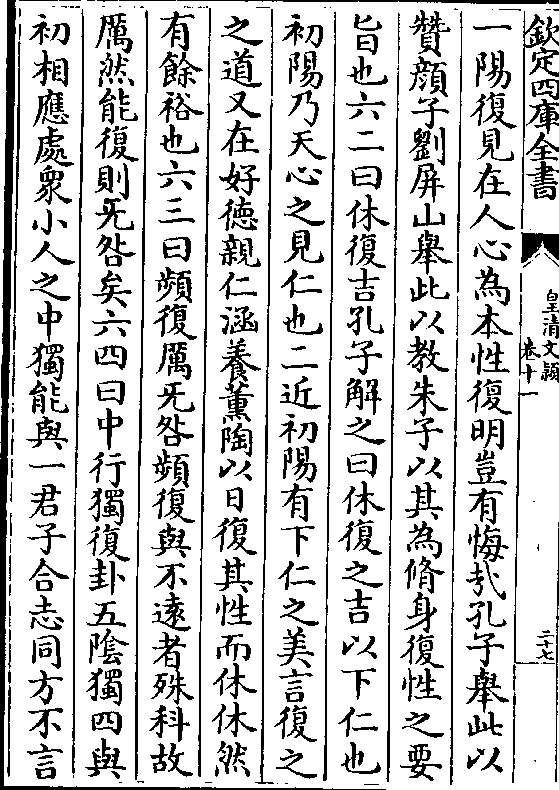 欽定四庫全書
皇清文穎
卷十一
三十七
一陽復見在人心為本性復明豈有悔㢤孔子舉此以
贊顔子劉屏山舉此以教朱子以其為脩身復性之要
旨也六二曰休復吉孔子解之曰休復之吉以下仁也
初陽乃天心之見仁也二近初陽有下仁之美言復之
之道又在好德親仁涵養薫陶以日復其性而休休然
有餘裕也六三曰頻復厲无咎頻復與不逺者殊科故
厲然能復則无咎矣六四曰中行獨復卦五陰獨四與
初相應處衆小人之中獨能與一君子合志同方不言